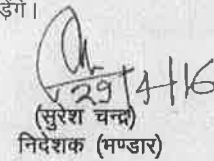 ड़ेंगे।
29/4/16
(सुरेश चन्द्र)
निदेशक (भण्डार)